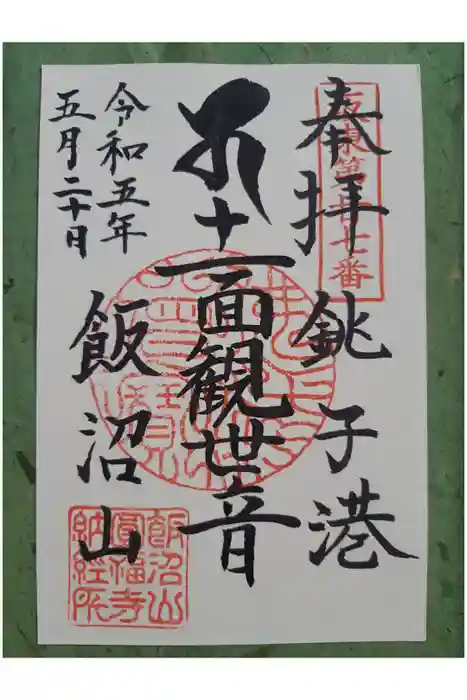 奉拝 銚子港
坂東第廿七番
十一面観世音
令和五年
五月二十日
飯沼山
飯沼山
圓福寺
納経所